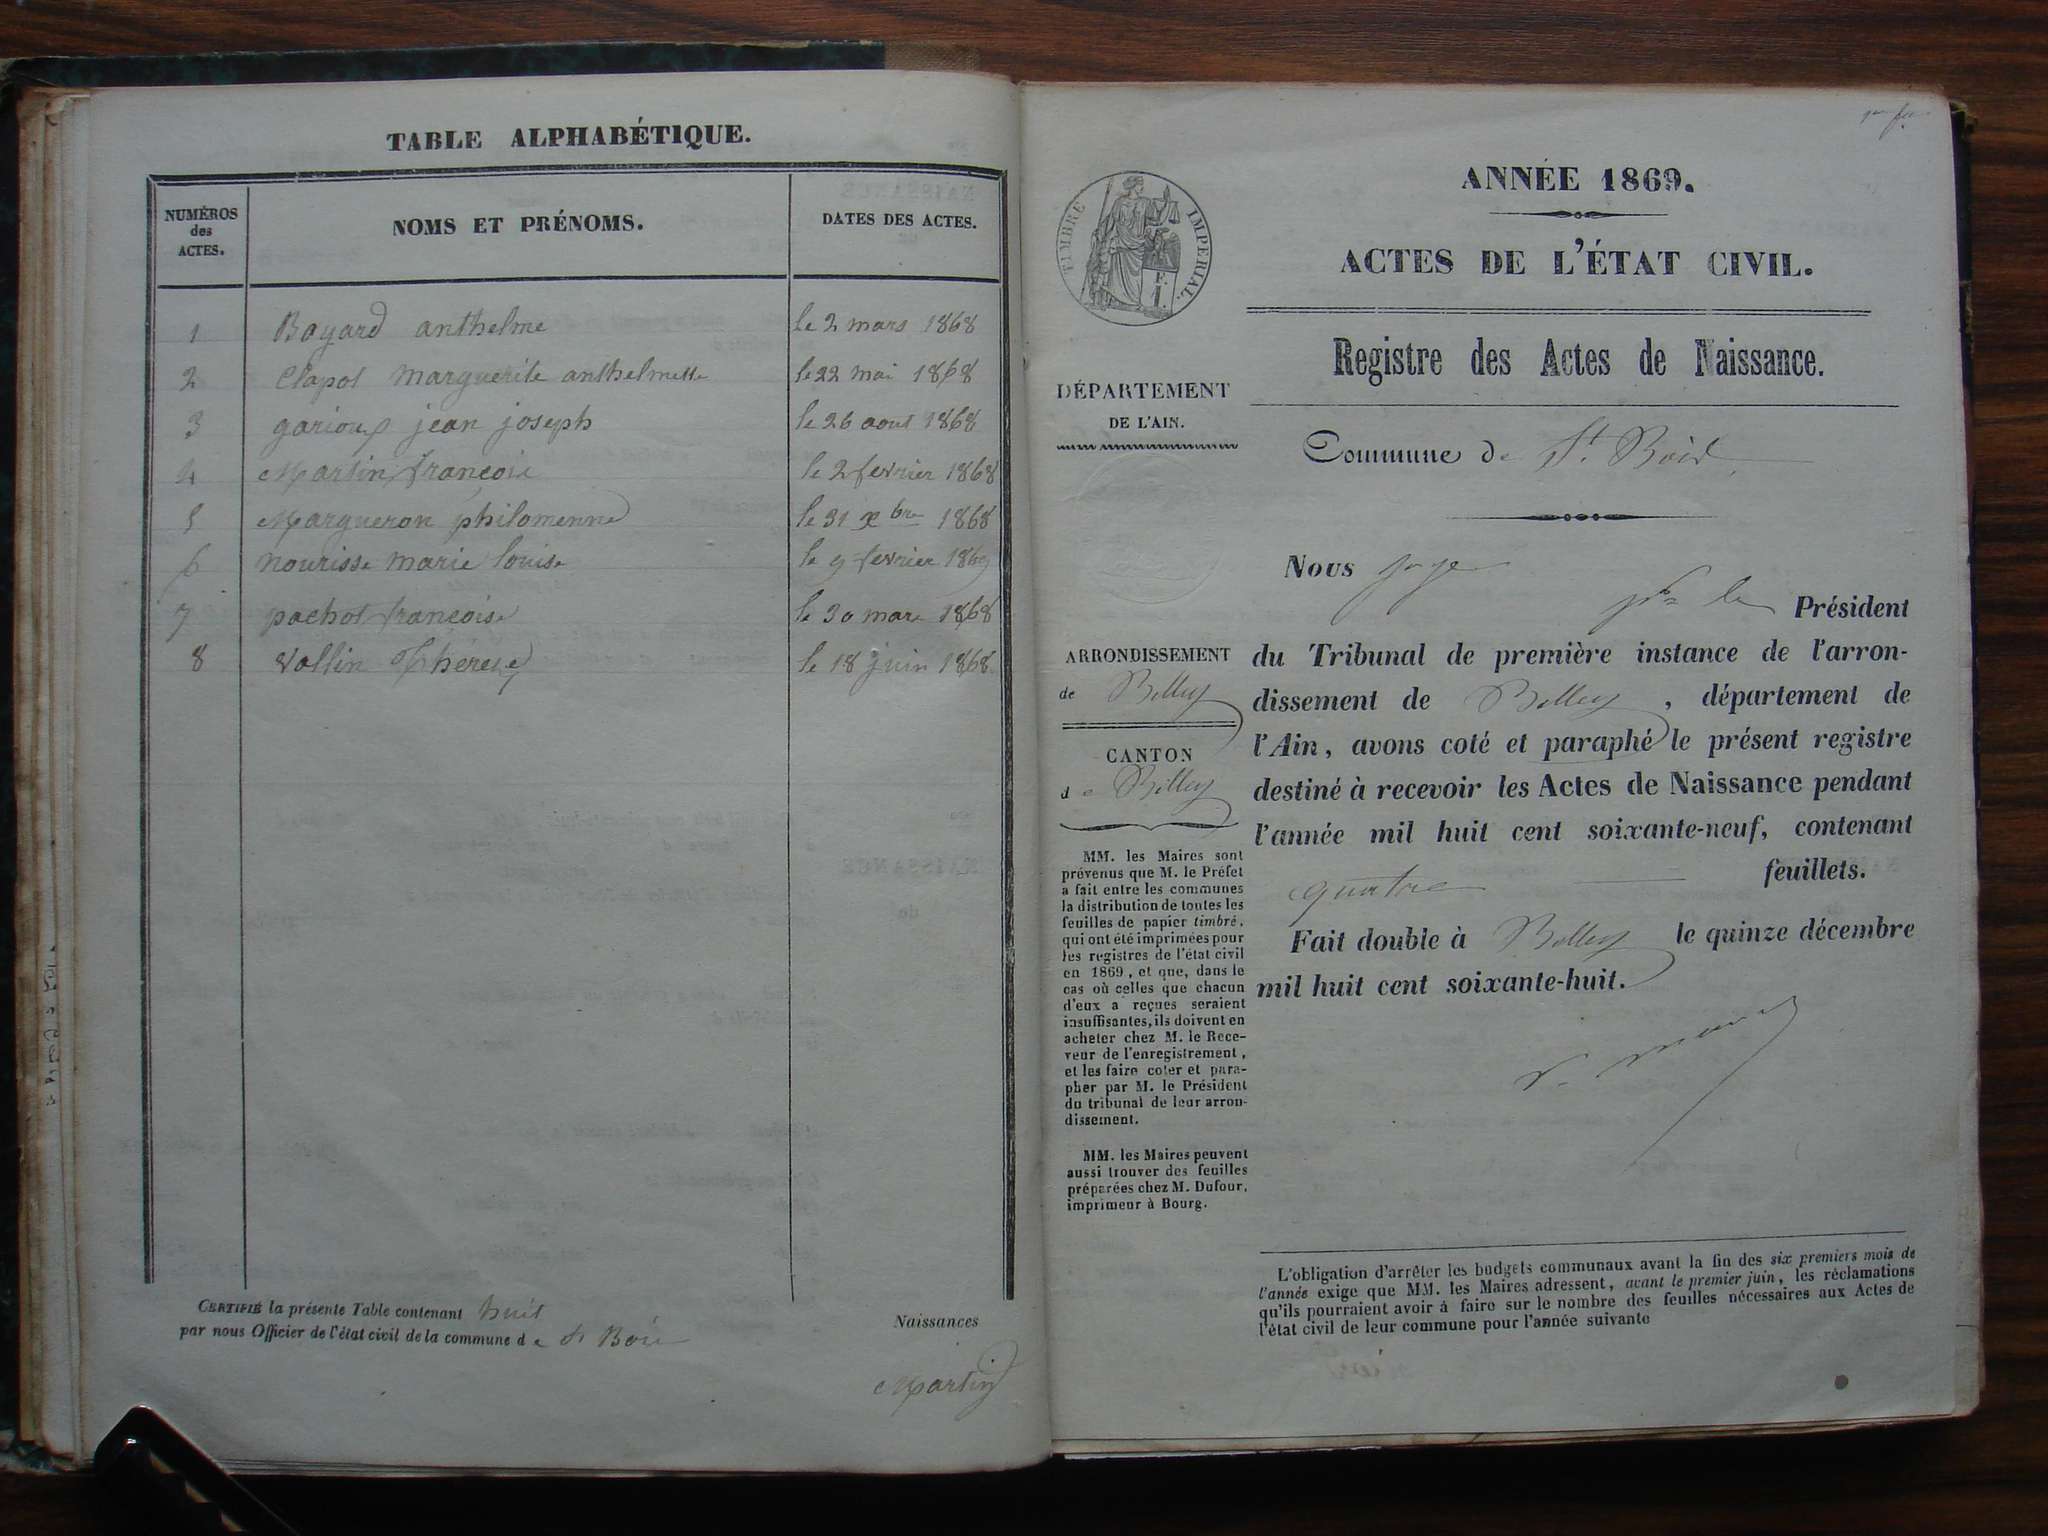 TABLE ALPHABÉTIQUE.
NUMÉROS des ACTES.
NOMS ET PRÉNOMS.
DATES DES ACTES.
1 Bayard anthelme le 2 mars 1868
2 Clapot Marguerite anthelmette le 22 mai 1868
3 garioux jean joseph le 26 aout 1868
4 Martin françois le 2 fevrier 1868
5 Margueron philomenne le 31 xbre 1868
6 Nourisse marie louise le 9 fevrier 1869
7 pachot françoise le 30 mars 1868
8 Vallin Thérèse le 18 juin 1868
CERTIFIÉ la présente Table contenant huit Naissances
par nous Officier de l'état civil de la commune de St Bois
Martin
ANNÉE 1869.
ACTES DE L'ÉTAT CIVIL.
Registre des Actes de Naissance.
TIMBRE IMPERIAL.
DÉPARTEMENT
DE L'AIN.
Commune de St. Bois
ARRONDISSEMENT
de Belley
CANTON
de Belley
MM. les Maires sont
prévenus que M. le Préfet
a fait entre les communes
la distribution de toutes les
feuilles de papier timbré,
qui ont été imprimées pour
les registres de l'état civil
en 1869, et que, dans le
cas où celles que chacun
d'eux a reçues seraient
insuffisantes, ils doivent en
acheter chez M. le Rece-
veur de l'enregistrement,
et les faire coter et para-
pher par M. le Président
du tribunal de leur arron-
dissement.
MM. les Maires peuvent
aussi trouver des feuilles
préparées chez M. Dufour,
imprimeur à Bourg.
Nous juge
pr le Président
du Tribunal de première instance de l'arron-
dissement de Belley, département de
l'Ain, avons coté et paraphé le présent registre
destiné à recevoir les Actes de Naissance pendant
l'année mil huit cent soixante-neuf, contenant
quatre feuillets.
Fait double à Belley le quinze décembre
mil huit cent soixante-huit.
L'obligation d'arrêter les budgets communaux avant la fin des six premiers mois de
l'année exige que MM. les Maires adressent, avant le premier juin, les réclamations
qu'ils pourraient avoir à faire sur le nombre des feuilles nécessaires aux Actes de
l'état civil de leur commune pour l'année suivante